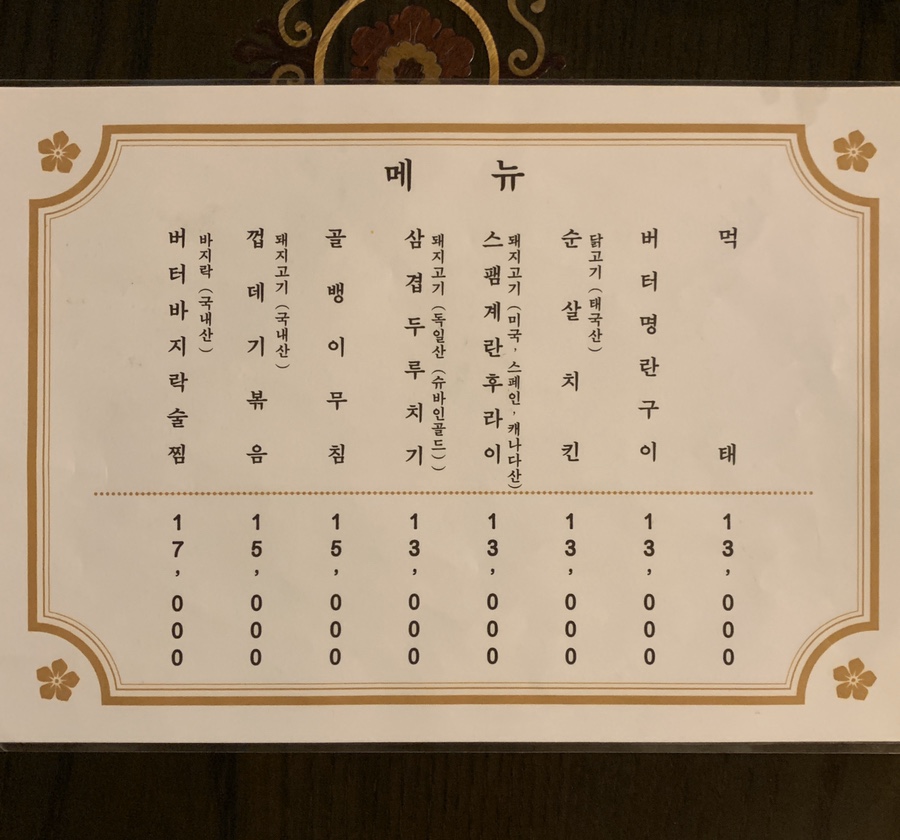 메 뉴
먹태
13,000
버터명란구이
13,000
순살치킨
닭고기 (태국산)
13,000
스팸계란후라이
돼지고기 (미국, 스페인, 캐나다산)
13,000
삼겹두루치기
돼지고기 (독일산 (슈바인골드))
13,000
골뱅이무침
15,000
껍데기볶음
돼지고기 (국내산)
15,000
버터바지락술찜
바지락 (국내산)
17,000